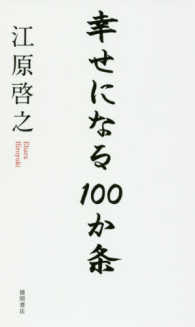 幸せになる100か条
江原啓之
Ehara
Hiroyuki
徳間書店